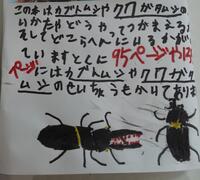 この本はカブトムシやクワガタムシの
いかたやどうやってつかまえる
そしてどこらへんにいるかがで
ていますとくに95ページや13
ページにはカブトムシやクワガタ
ムシのせいちょうとかいてありま